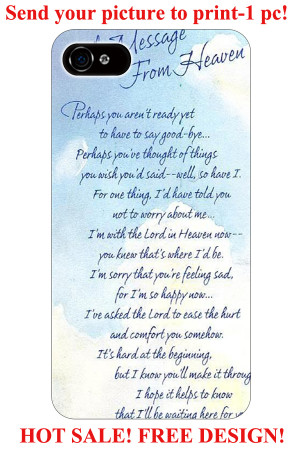 Send your picture to print-1 pc!
A Message
From Heaven
Perhaps you aren't ready yet
to have to say good-bye...
Perhaps you've thought of things
you wish you'd said--well, so have I.
For one thing, I'd have told you
not to worry about me...
I'm with the Lord in Heaven now--
you know that's where I'd be.
I'm sorry that you're feeling sad,
for I'm so happy now...
I've asked the Lord to ease the hurt
and comfort you somehow.
It's hard at the beginning,
but I know you'll make it throug
I hope it helps to know
that I'll be waiting here for
HOT SALE! FREE DESIGN!